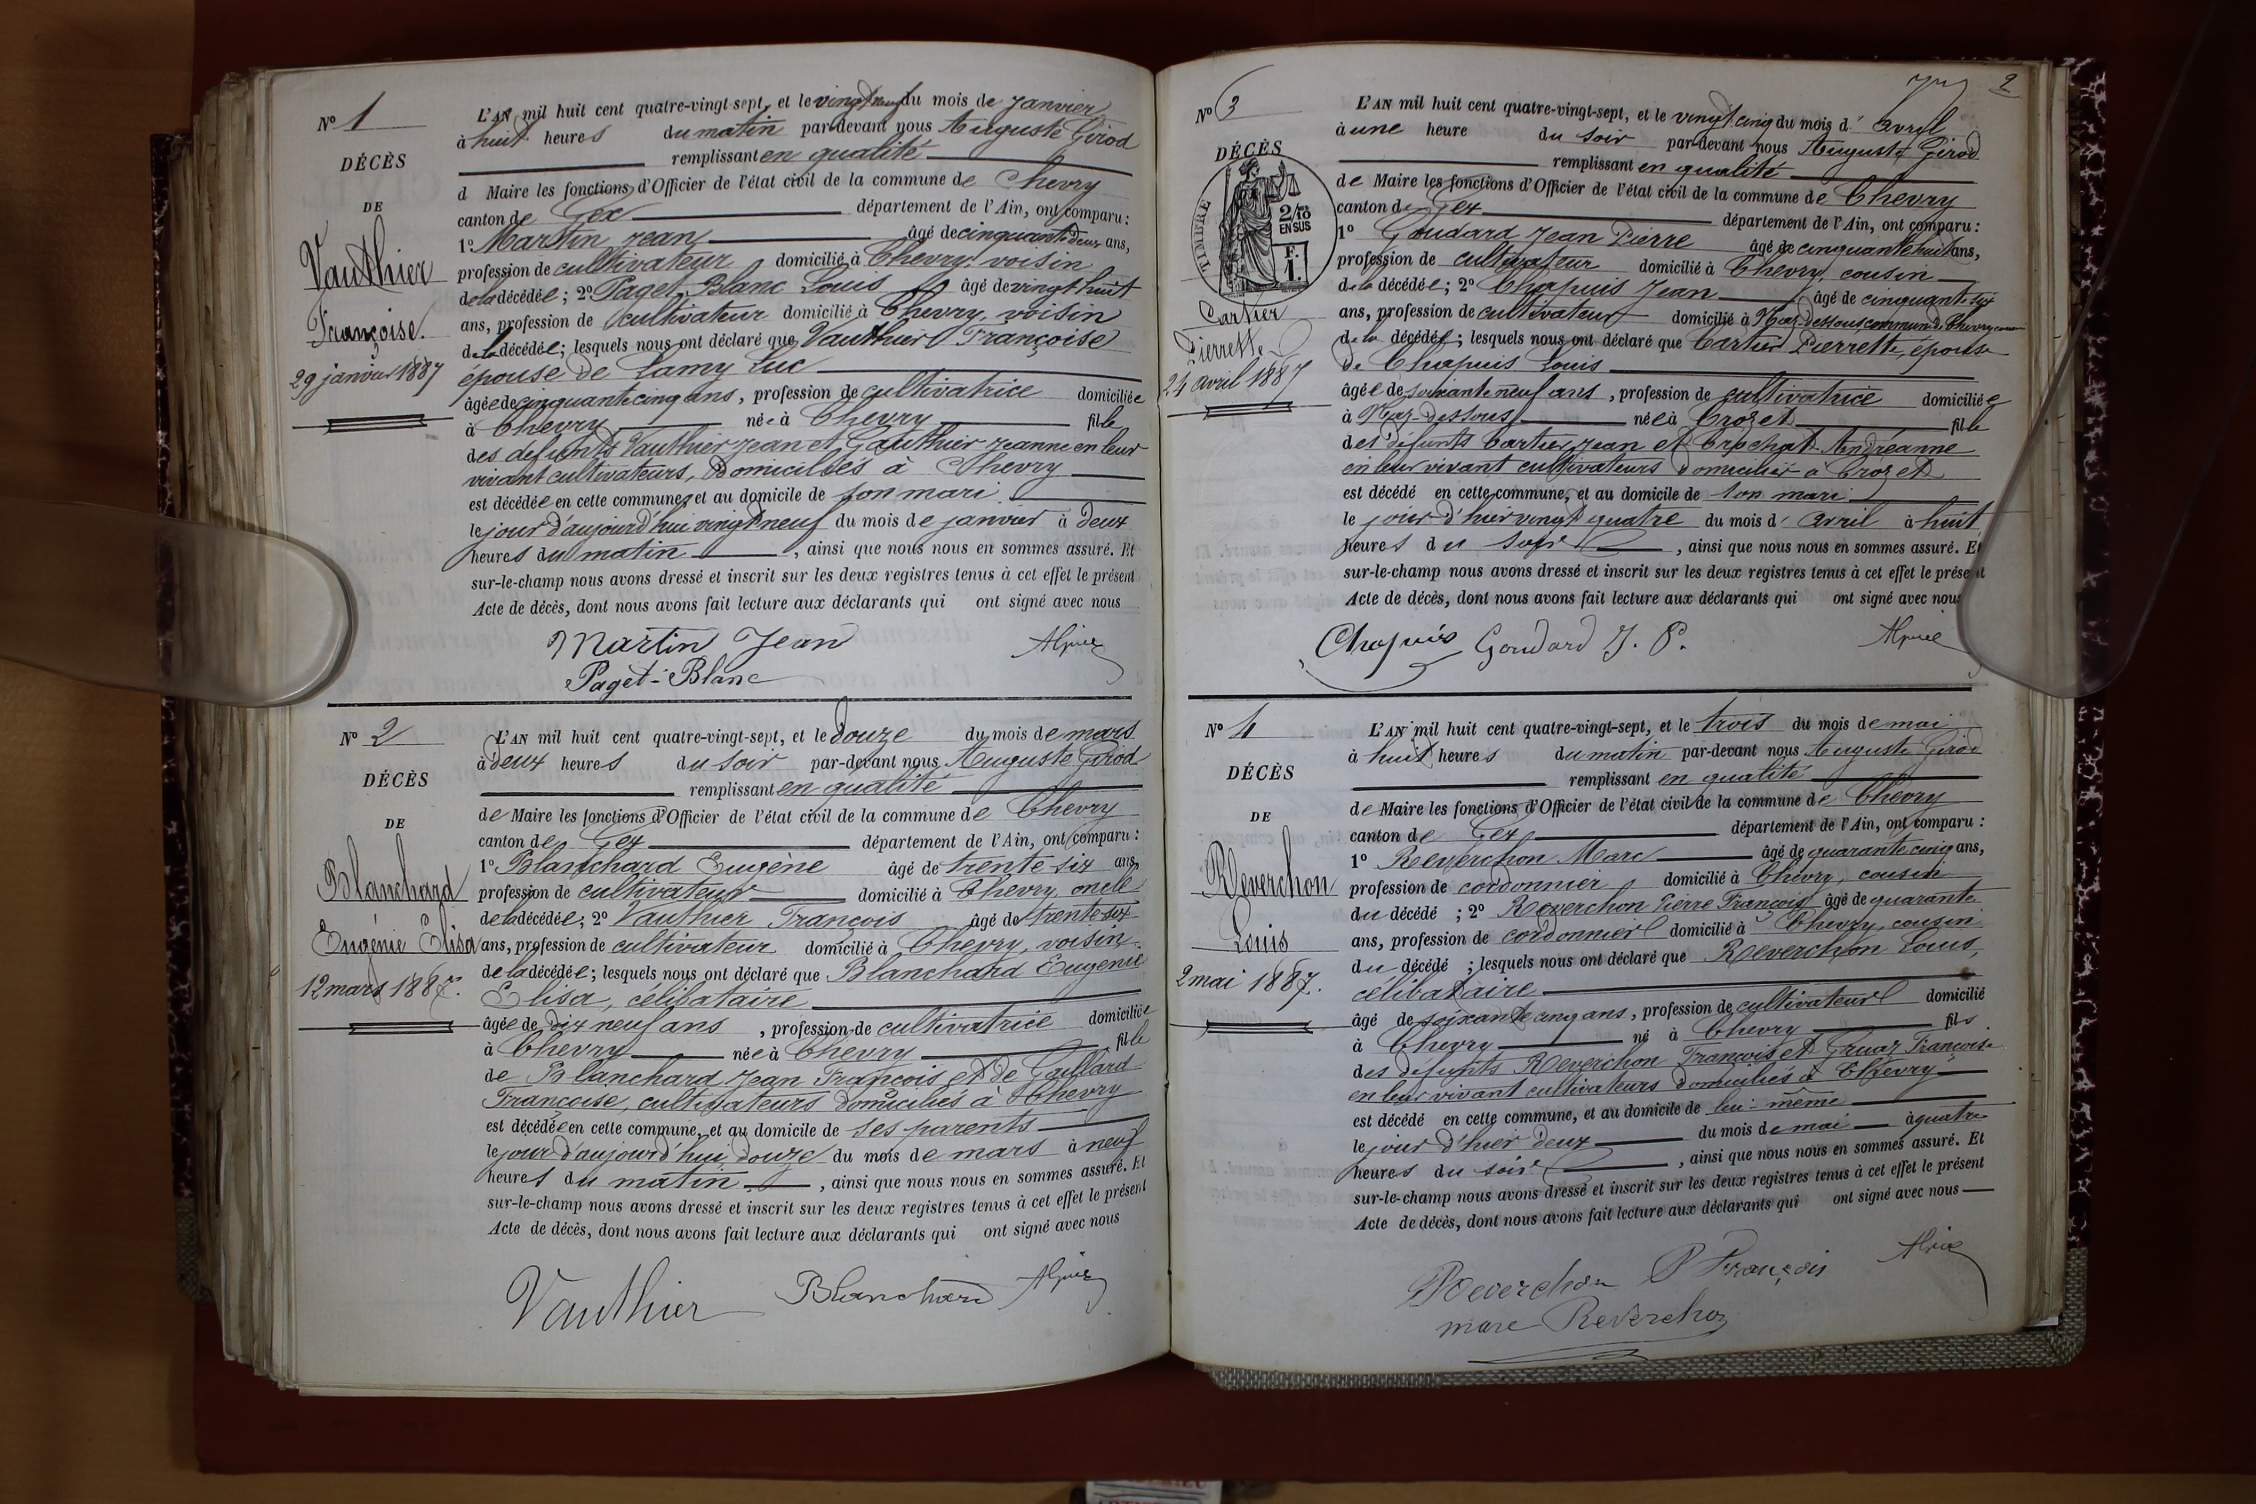 Nº 1
DÉCÈS
DE
Vauthier
Françoise.
29 janvier 1887
L'AN mil huit cent quatre-vingt-sept, et le vingt neuf du mois de janvier
à huit heures du matin par-devant nous Auguste Girod
remplissant en qualité
d Maire les fonctions d'Officier de l'état civil de la commune de Chevry
canton de Gex département de l'Ain, ont comparu :
1º Martin Jean âgé de cinquante deux ans,
profession de cultivateur domicilié à Chevry, voisin
de la décédée ; 2º Paget-Blanc Louis âgé de vingt huit
ans, profession de cultivateur domicilié à Chevry, voisin
de la décédée ; lesquels nous ont déclaré que Vauthier Françoise
épouse de Lamy Luc
âgée de cinquante cinq ans, profession de cultivatrice domiciliée
à Chevry née à Chevry fille
des defunts Vauthier Jean et Gauthier Jeanne en leur
vivant cultivateurs, domiciliés à Chevry
est décédée en cette commune, et au domicile de son mari
le jour d'aujourd'hui vingt neuf du mois de janvier à deux
heures du matin , ainsi que nous nous en sommes assuré. Et
sur-le-champ nous avons dressé et inscrit sur les deux registres tenus à cet effet le présent
Acte de décès, dont nous avons fait lecture aux déclarants qui ont signé avec nous
Martin Jean
Paget-Blanc
Nº 2
DÉCÈS
DE
Blanchard
Eugénie Elisa
12 mars 1887.
L'AN mil huit cent quatre-vingt-sept, et le douze du mois de mars
à deux heures du soir par-devant nous Auguste Girod
remplissant en qualité
de Maire les fonctions d'Officier de l'état civil de la commune de Chevry
canton de Gex département de l'Ain, ont comparu :
1º Blanchard Eugène âgé de trente-six ans,
profession de cultivateur domicilié à Chevry, oncle
de la décédée ; 2º Vauthier François âgé de trente-six
ans, profession de cultivateur domicilié à Chevry, voisin
de la décédée ; lesquels nous ont déclaré que Blanchard Eugénie
Elisa, célibataire
âgée de dix neuf ans , profession de cultivatrice domiciliée
à Chevry née à Chevry fille
de Blanchard Jean François et de Gaillard
Françoise, cultivateurs domiciliés à Chevry
est décédée en cette commune, et au domicile de ses parents
le jour d'aujourd'hui douze du mois de mars à neuf
heures du matin , ainsi que nous nous en sommes assuré. Et
sur-le-champ nous avons dressé et inscrit sur les deux registres tenus à cet effet le présent
Acte de décès, dont nous avons fait lecture aux déclarants qui ont signé avec nous
Vauthier Blanchard
2
Nº 3
DÉCÈS
TIMBRE
2/10 EN SUS
F. 1.
Cartier
Pierrette
24 avril 1887
L'AN mil huit cent quatre-vingt-sept, et le vingt cinq du mois d' avril
à une heure du soir par-devant nous Auguste Girod
remplissant en qualité
de Maire les fonctions d'Officier de l'état civil de la commune de Chevry
canton de Gex département de l'Ain, ont comparu :
1º Goudard Jean Pierre âgé de cinquante huit ans,
profession de cultivateur domicilié à Chevry, cousin
de la décédée ; 2º Chapuis Jean âgé de cinquante six
ans, profession de cultivateur domicilié à Naz-dessous commune de Chevry
de la décédée ; lesquels nous ont déclaré que Cartier Pierrette, épouse
de Chapuis Louis
âgée de soixante neuf ans , profession de cultivatrice domiciliée
à Naz-Dessous née à Crozet fille
des defunts Cartier Jean et Andréanne
en leur vivant cultivateurs domiciliés à Crozet
est décédé en cette commune, et au domicile de son mari
le jour d'hier vingt quatre du mois d' avril à huit
heures du soir , ainsi que nous nous en sommes assuré. Et
sur-le-champ nous avons dressé et inscrit sur les deux registres tenus à cet effet le présent
Acte de décès, dont nous avons fait lecture aux déclarants qui ont signé avec nous
Chapuis Goudard J. P.
Nº 4
DÉCÈS
DE
Reverchon
Louis
2 mai 1887.
L'AN mil huit cent quatre-vingt-sept, et le trois du mois de mai
à huit heures du matin par-devant nous Auguste Girod
remplissant en qualité
de Maire les fonctions d'Officier de l'état civil de la commune de Chevry
canton de Gex département de l'Ain, ont comparu :
1º Reverchon Marc âgé de quarante cinq ans,
profession de cordonnier domicilié à Chevry, cousin
du décédé ; 2º Reverchon Pierre François âgé de quarante
ans, profession de cordonnier domicilié à Chevry, cousin
du décédé ; lesquels nous ont déclaré que Reverchon Louis,
célibataire
âgé de soixante cinq ans, profession de cultivateur domicilié
à Chevry né à Chevry fils
des defunts Reverchon François et Gruaz Françoise
en leur vivant cultivateurs domiciliés à Chevry
est décédé en cette commune, et au domicile de lui-même
le jour d'hier deux du mois de mai à quatre
heures du soir , ainsi que nous nous en sommes assuré. Et
sur-le-champ nous avons dressé et inscrit sur les deux registres tenus à cet effet le présent
Acte de décès, dont nous avons fait lecture aux déclarants qui ont signé avec nous
Reverchon P François
marc Reverchon